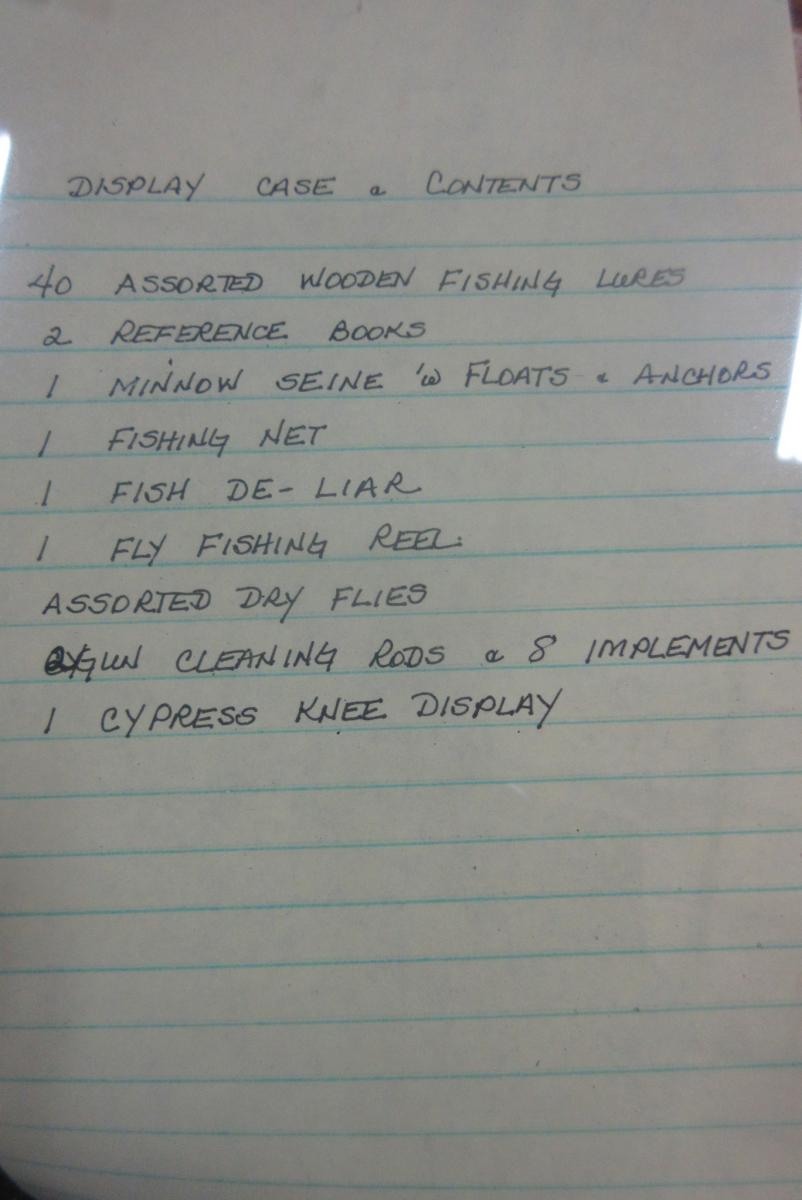 DISPLAY CASE & CONTENTS
40 ASSORTED WOODEN FISHING LURES
2 REFERENCE BOOKS
1 MINNOW SEINE 'W FLOATS & ANCHORS
1 FISHING NET
1 FISH DE-LIAR
1 FLY FISHING REEL
ASSORTED DRY FLIES
GUN CLEANING RODS & 8 IMPLEMENTS
1 CYPRESS KNEE DISPLAY